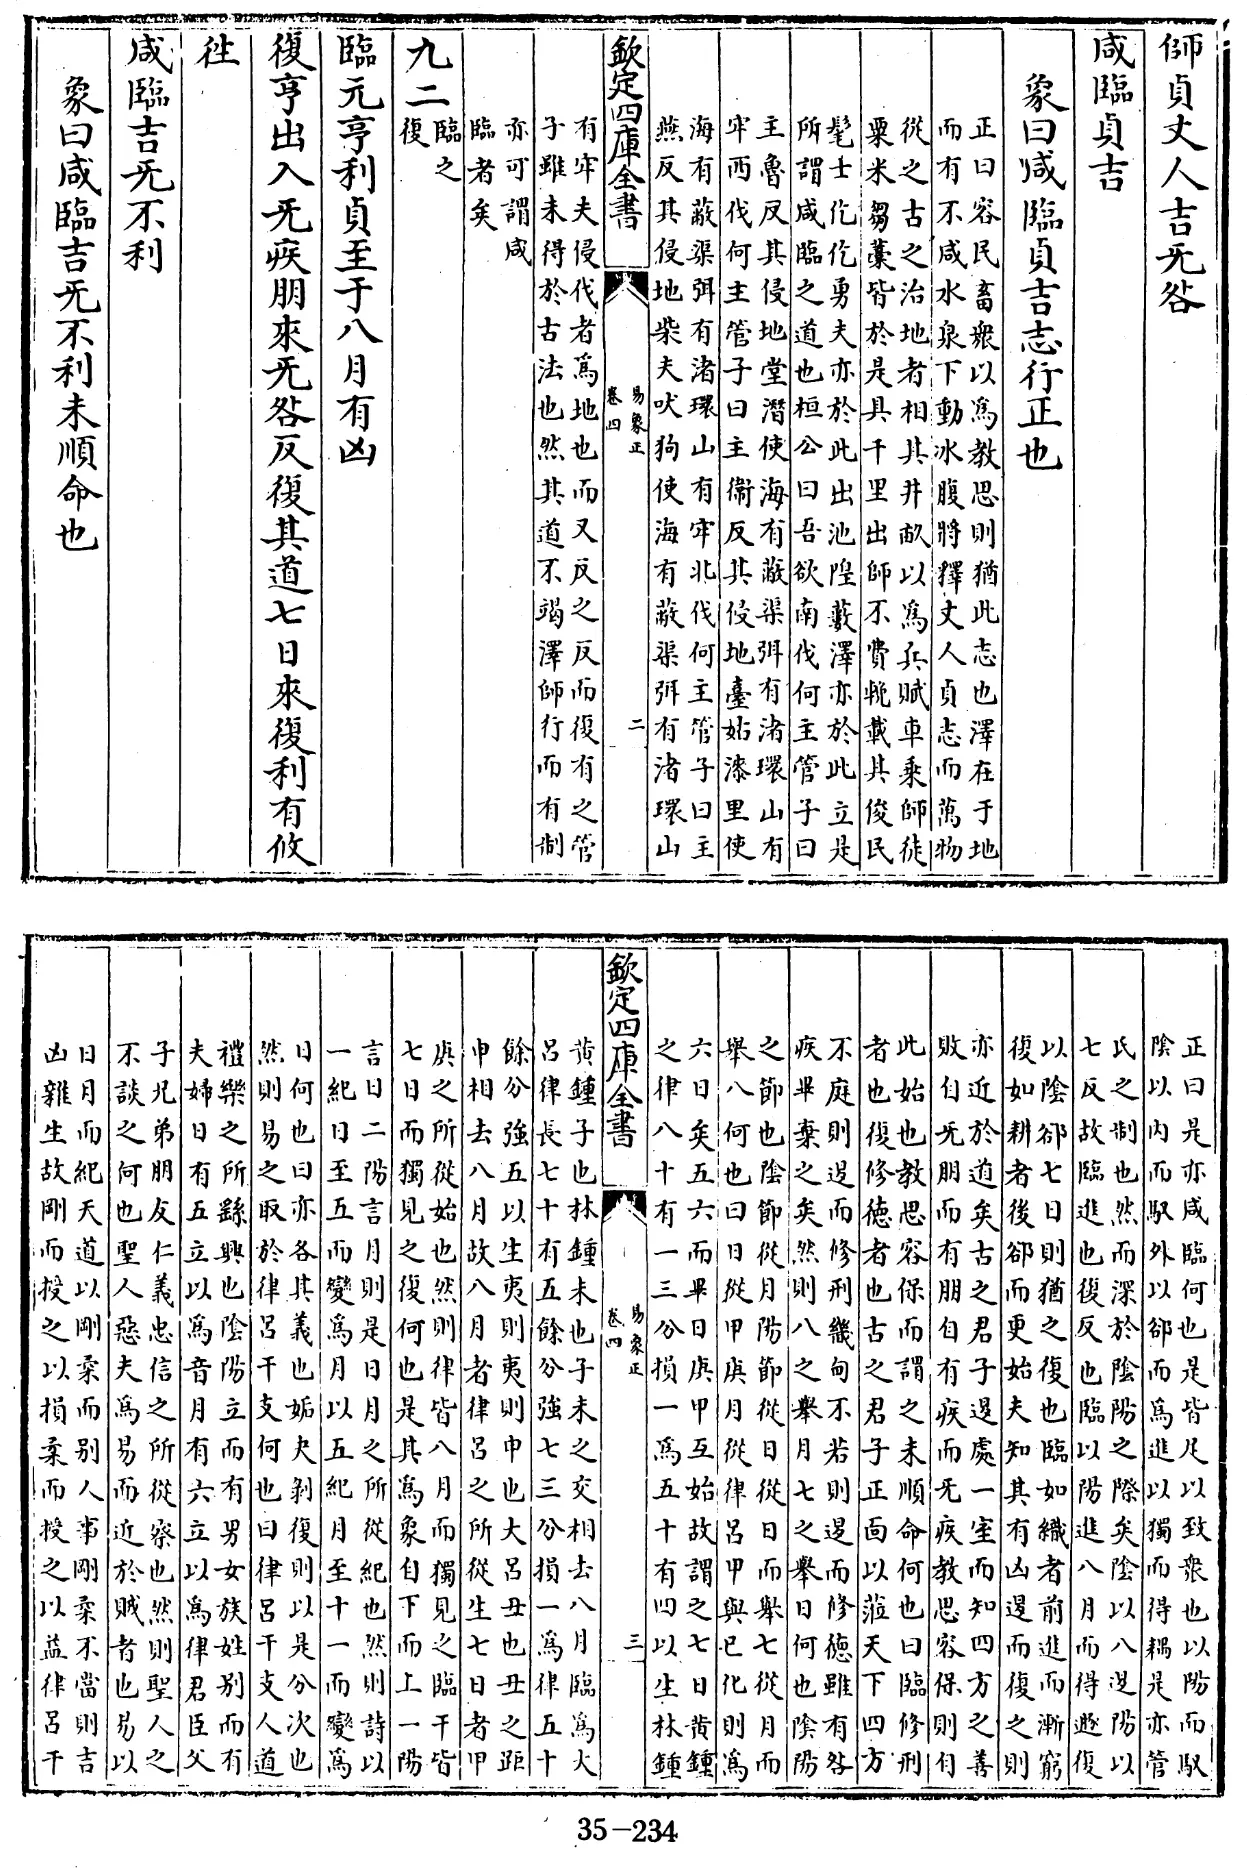 師貞丈人吉无咎
咸臨貞吉
象曰咸臨貞吉志行正也
正曰容民畜衆以為教思則猶此志也澤在于地
而有不咸水泉下動冰腹將釋丈人貞志而萬物
從之古之治地者相其井畝以為兵賦車乘師徒
粟米芻藁皆於是具千里出師不費輓載其俊民
髦士仡仡勇夫亦於此出池隍藪澤亦於此立是
所謂咸臨之道也桓公曰吾欲南伐何主管子曰
主魯反其侵地堂潛使海有蔽渠弭有渚環山有
牢西伐何主管子曰主衛反其侵地臺姑漆里使
海有蔽渠弭有渚環山有牢北伐何主管子曰主
燕反其侵地柴夫吠狗使海有蔽渠弭有渚環山
欽定四庫全書
易象正
卷四
二
有牢夫侵伐者為地也而又反之反而復有之管
子雖未得於古法也然其道不竭澤師行而有制
亦可謂咸
臨者矣
九二臨之復
臨元亨利貞至于八月有凶
復亨出入无疾朋來无咎反復其道七日來復利有攸
往
咸臨吉无不利
象曰咸臨吉无不利未順命也
正曰是亦咸臨何也是皆足以致衆也以陽而馭
陰以内而馭外以郤而為進以獨而得耦是亦管
氏之制也然而深於陰陽之際矣陰以八逞陽以
七反故臨進也復反也臨以陽進八月而得遯復
以陰郤七日則猶之復也臨如織者前進而漸窮
復如耕者後郤而更始夫知其有凶逞而復之則
亦近於道矣古之君子逞處一室而知四方之善
敗自无朋而有朋自有疾而无疾教思容保則自
此始也教思容保而謂之未順命何也曰臨修刑
者也復修德者也古之君子正靣以蒞天下四方
不庭則逞而修刑畿甸不若則逞而修德雖有咎
疾畢棄之矣然則八之舉月七之舉日何也陰陽
之節也陰節從月陽節從日從日而舉七從月而
舉八何也曰日從甲庚月從律呂甲與己化則為
六日矣五六而畢日庚甲互始故謂之七日黄鍾
之律八十有一三分損一為五十有四以生林鍾
欽定四庫全書
易象正
卷四
三
黄鍾子也林鍾未也子未之交相去八月臨為大
呂律長七十有五餘分強七三分損一為律五十
餘分強五以生夷則夷則申也大呂丑也丑之距
申相去八月故八月者律呂之所從生七日者甲
庚之所從始也然則律皆八月而獨見之臨干皆
七日而獨見之復何也是其為象自下而上一陽
言日二陽言月則是日月之所從紀也然則詩以
一紀日至五而變為月以五紀月至十一而變為
日何也曰亦各其義也姤夬剝復則以是分次也
然則易之取於律呂干支何也曰律呂干支人道
禮樂之所繇興也陰陽立而有男女族姓别而有
夫婦日有五立以為音月有六立以為律君臣父
子兄弟朋友仁義忠信之所從察也然則聖人之
不談之何也聖人惡夫為易而近於賊者也易以
日月而紀天道以剛柔而别人事剛柔不當則吉
凶雜生故剛而授之以損柔而授之以益律呂干
35-234